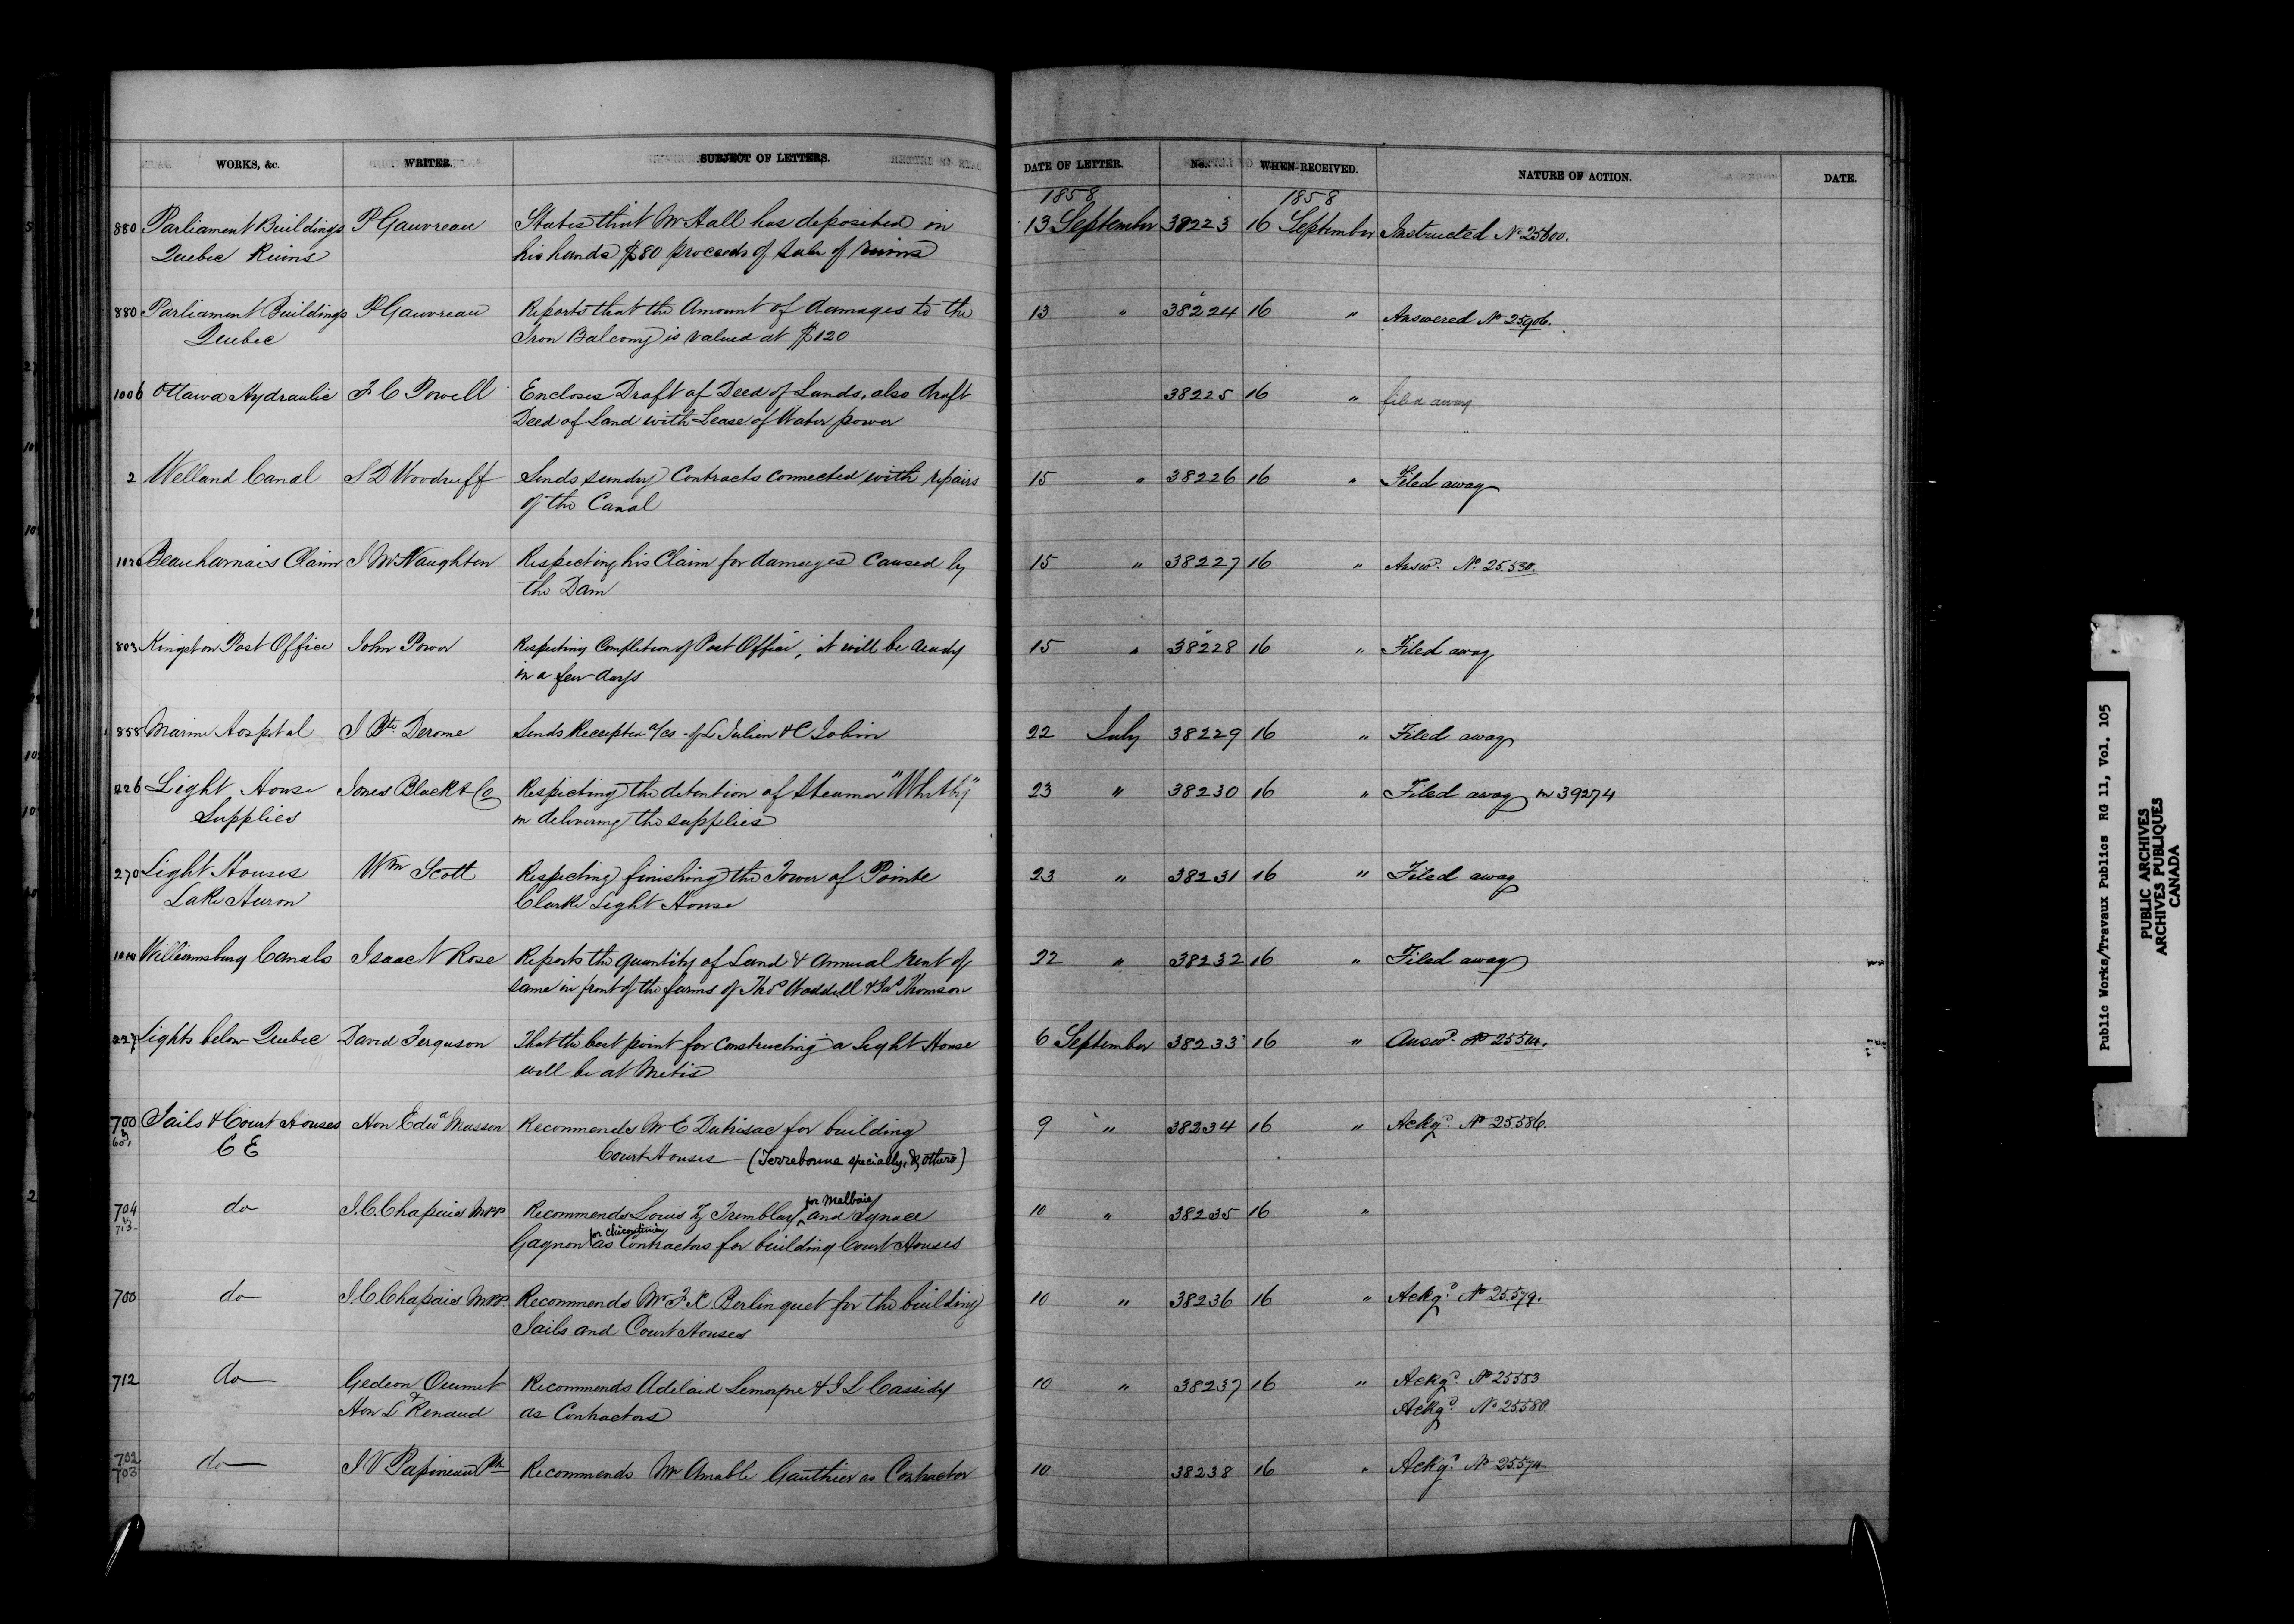 WORKS, &c. WRITER. SUBJECT OF LETTERS. DATE OF LETTER. No. WHEN RECEIVED. NATURE OF ACTION. DATE.
1858 1858
880 Parliament Buildings P Gauvreau States that Mr Hall has deposited in 13 September 38223 16 September Instructed No 25600.
Quebec Ruins his hands $80 proceeds of sale of ruins
880 Parliament Buildings P Gauvreau Reports that the Amount of damages to the 13 " 38224 16 " Answered No 25906.
Quebec Iron Balcony is valued at $120
1006 Ottawa Hydraulic F C Powell Encloses Draft of Deed of Lands, also draft 38225 16 " filed away
Deed of Land with Lease of Water power
2 Welland Canal S D Woodruff Sends sundry Contracts connected with repairs 15 " 38226 16 " Filed away
of the Canal
Beauharnais Claim J McNaughton Respecting his Claim for damages caused by 15 " 38227 16 " Answd No 25.530.
the Dam
803 Kingston Post Office John Power Respecting Completion of Post Office, it will be ready 15 " 38228 16 " Filed away
in a few days
858 Marine Hospital J Bte Derome Sends Receipted a/cs of L Julien & C Jobin 22 July 38229 16 " Filed away
226 Light House Jones Black & Co Respecting the detention of Steamer "Whitby" 23 " 38230 16 " Filed away in 39274
Supplies in delivering the supplies
270 Light Houses Wm Scott Respecting finishing the Tower of Pointe 23 " 38231 16 " Filed away
Lake Huron Clarke Light House
Williamsburg Canals Isaac N Rose Reports the quantity of Land & annual rent of 22 " 38232 16 " Filed away
same in front of the farms of Thos Waddell & Jas Thomson
227 Lights below Quebec David Ferguson That the best point for constructing a Light House 6 September 38233 16 " Answd No 25514.
will be at Metis
700 Jails & Court Houses Hon Edwd Masson Recommends Mr E Dutrisac for building 9 " 38234 16 " Ackgd No 25586.
C E Court Houses (Terrebonne specially, & others)
704 do J. C. Chapais MPP Recommends Louis Z Tremblay for Malbaie and Ignace 10 " 38235 16 "
713 Gagnon for Chicoutimi as Contractors for building Court Houses
700 do J. C. Chapais MPP. Recommends Mr F. X. Berlinguet for the building 10 " 38236 16 " Ackgd No 25.579.
Jails and Court Houses
712 do Gedeon Ouimet Recommends Adelaid Lemoyne & J L Cassidy 10 " 38237 16 " Ackgd No 25583
& Hon L Renaud as Contractors Ackgd No 25580.
702 do J V Papineau Recommends Mr Amable Gauthier as Contractor 10 38238 16 " Ackgd No 25574
703
Public Works/Travaux Publics RG 11, Vol. 105
PUBLIC ARCHIVES
ARCHIVES PUBLIQUES
CANADA